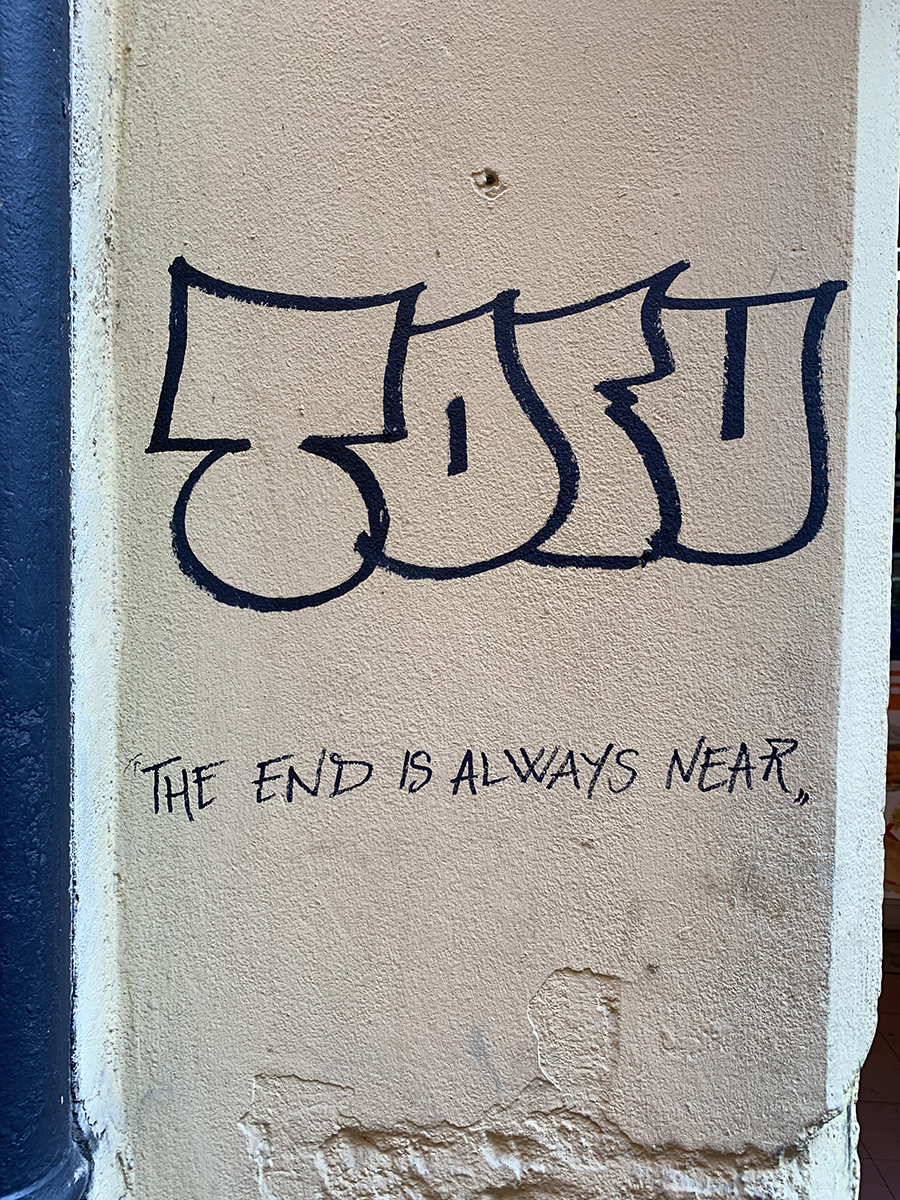 TOFU
"THE END IS ALWAYS NEAR„